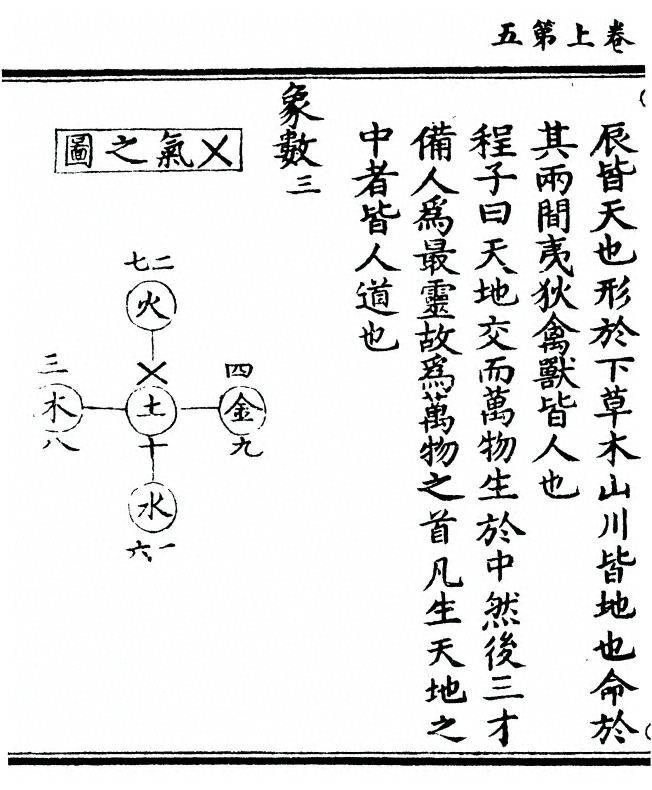 卷上第五
辰皆天也形於下草木山川皆地也命於
其兩間夷狄禽獸皆人也
程子曰天地交而萬物生於中然後三才
備人為最靈故為萬物之首凡生天地之
中者皆人道也
象數三
㐅氣之圖
二七
火
三
木
八
㐅
土
十
四
金
九
水
一六